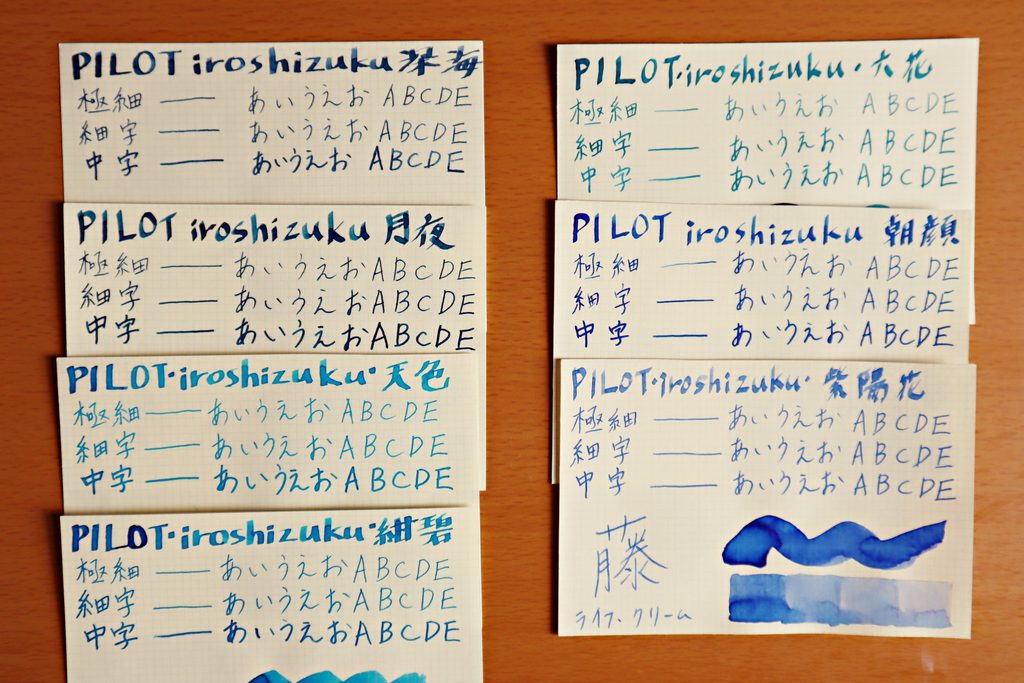 PILOT iroshizuku 深海
極細 — あいうえお ABCDE
細字 — あいうえお ABCDE
中字 — あいうえお ABCDE
PILOT iroshizuku 月夜
極細 — あいうえお ABCDE
細字 — あいうえお ABCDE
中字 — あいうえお ABCDE
PILOT・iroshizuku・天色
極細 — あいうえお ABCDE
細字 — あいうえお ABCDE
中字 — あいうえお ABCDE
PILOT・iroshizuku・紺碧
極細 — あいうえお ABCDE
細字 — あいうえお ABCDE
中字 — あいうえお ABCDE
PILOT・iroshizuku・六花
極細 — あいうえお ABCDE
細字 — あいうえお ABCDE
中字 — あいうえお ABCDE
PILOT iroshizuku 朝顔
極細 — あいうえお ABCDE
細字 — あいうえお ABCDE
中字 — あいうえお ABCDE
PILOT・iroshizuku・紫陽花
極細 — あいうえお ABCDE
細字 — あいうえお ABCDE
中字 — あいうえお ABCDE
藤
ライフ・クリーム